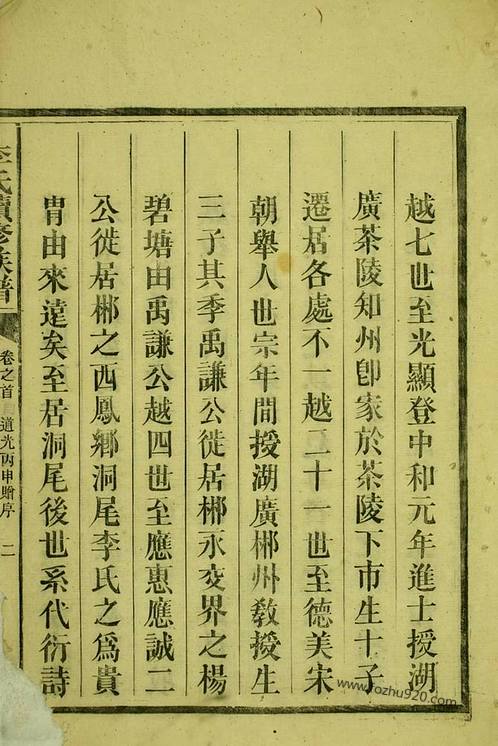 越七世至光顯登中和元年進士授湖
廣茶陵知州卽家於茶陵下市生十子
遷居各處不一越二十一世至德美宋
朝舉人世宗年間授湖廣郴州敎授生
三子其季禹謙公徙居郴永交界之楊
碧塘由禹謙公越四世至應惠應誠二
公徙居郴之西鳳鄉洞尾李氏之爲貴
胄由來遠矣至居洞尾後世系代衍詩
李氏續修族譜
卷之首 道光丙申贈序 二
www.fozhu920.com